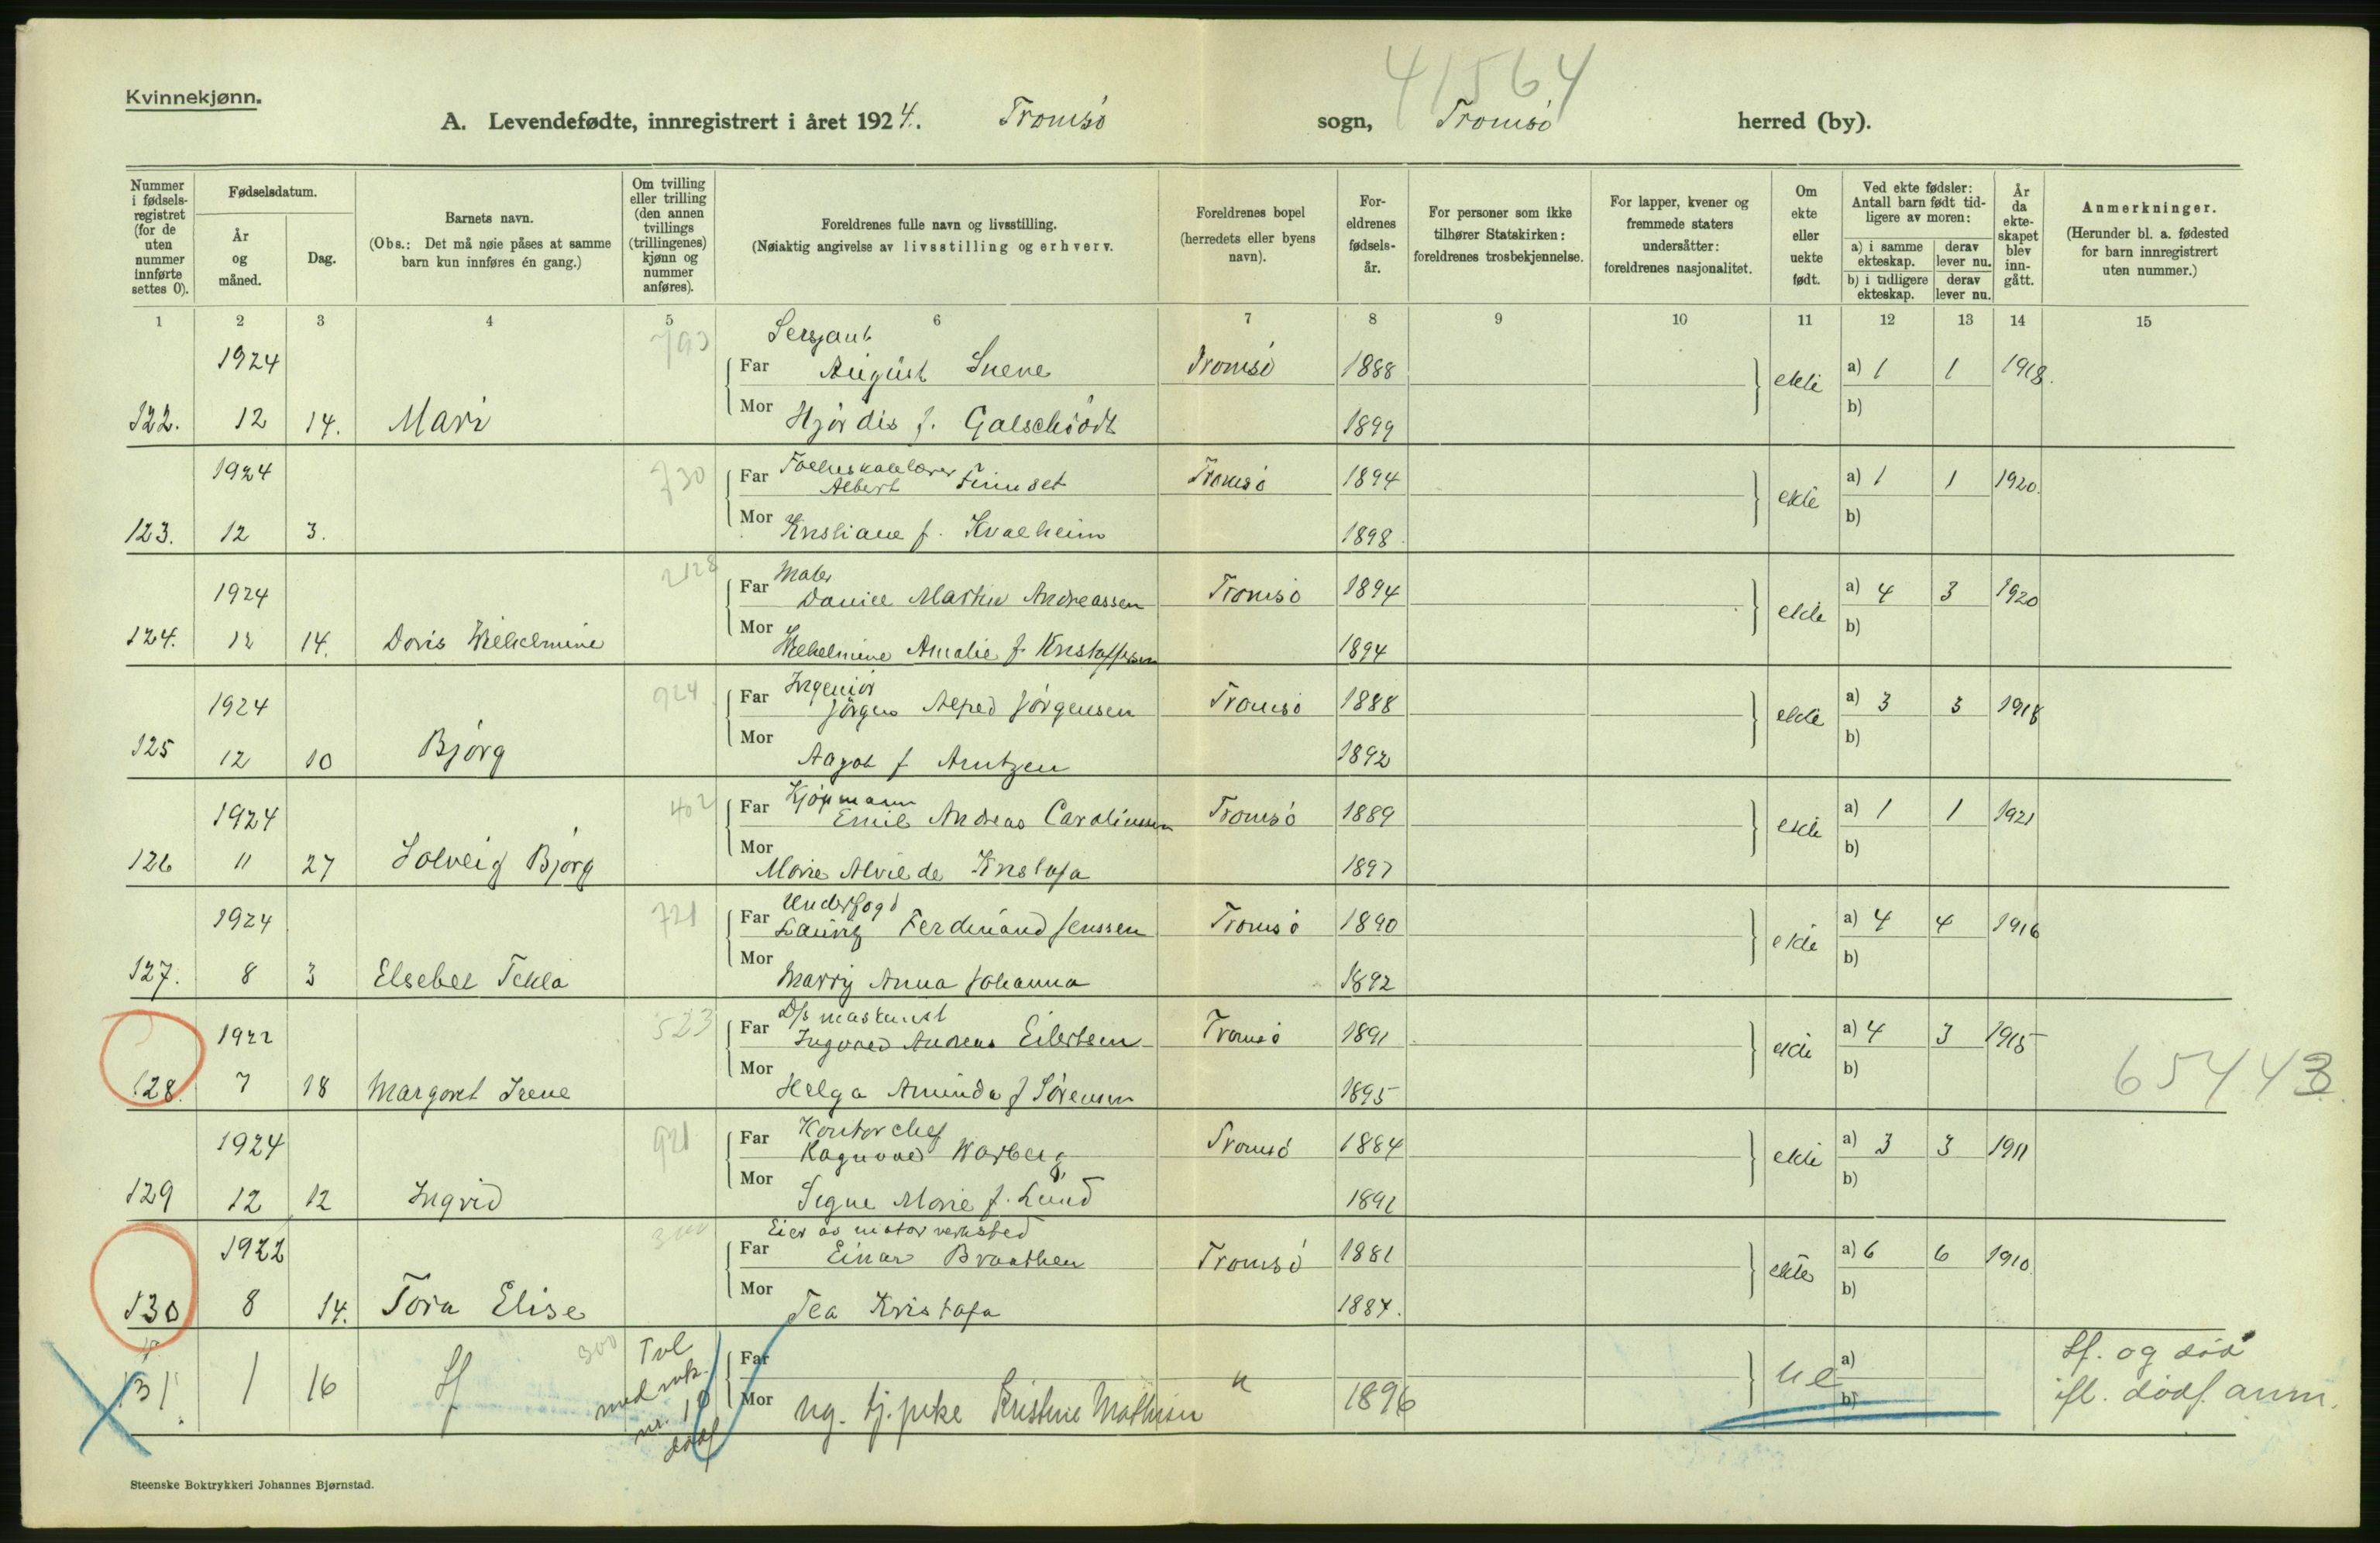 Kvinnekjønn.
41564
A. Levendefødte, innregistrert i året 1924. Tromsö sogn, Tromsö herred (by).
Nummer i fødsels-registret (for de uten nummer innførte settes 0).
Fødselsdatum.
År og måned.
Dag.
Barnets navn.
(Obs.: Det må nøie påses at samme barn kun innføres én gang.)
Om tvilling eller trilling (den annen tvillings (trillingenes) kjønn og nummer anføres).
Foreldrenes fulle navn og livsstilling.
(Nøiaktig angivelse av livsstilling og erhverv.
Foreldrenes bopel (herredets eller byens navn).
For-eldrenes fødsels-år.
For personer som ikke tilhører Statskirken: foreldrenes trosbekjennelse.
For lapper, kvener og fremmede staters undersåtter: foreldrenes nasjonalitet.
Om ekte eller uekte født.
Ved ekte fødsler: Antall barn født tid-ligere av moren:
a) i samme ekteskap.
derav lever nu.
b) i tidligere ekteskap.
derav lever nu.
År da ekte-skapet blev inn-gått.
Anmerkninger.
(Herunder bl. a. fødested for barn innregistrert uten nummer.)
1 2 3 4 5 6 7 8 9 10 11 12 13 14 15
793 Sersjant
1924 Far August Sneve Tromsö 1888 ekte a) 1 1 1918.
122. 12 14. Mari Mor Hjördis f. Galschiödt 1899 b)
1924 730 Far Folkeskolelærer Albert Finnset Tromsö 1894 ekte a) 1 1 1920.
123. 12 3. Mor Kristiane f. Kvalheim 1898. b)
2128 Maler
1924 Far Daniel Martin Andreassen Tromsö 1894 ekte a) 4 3 1920
124. 12 14. Doris Wilhelmine Mor Wilhelmine Amalie f. Kristoffersen 1894 b)
924 Ingeniör
1924 Far Jörgen Alfred Jörgensen Tromsö 1888 ekte a) 3 3 1918
125 12 10 Björg Mor Aagot f Arntzen 1892 b)
402 Kjöpmann
1924 Far Emil Andreas Caroliussen Tromsö 1889 ekte a) 1 1 1921
126 11 27 Solveig Björg Mor Marie Alvilde Kristofa 1897 b)
721 Underfogd
1924 Far Lauritz Ferdinand Jenssen Tromsö 1890 ekte a) 4 4 1916
127. 8 3 Elsebet Tekla Mor Marry Anna Johanna 1892 b)
523 D/s maskinist
1922 Far Ingvald Andreas Eilertsen Tromsö 1891 ekte a) 4 3 1915
128. 7 18 Margoret Irene Mor Helga Aminda f Sörensen 1895 b) 65443
921 Kontorchef
1924 Far Ragnvald Warberg Tromsö 1884 ekte a) 3 3 1911
129 12 12 Ingrid Mor Signe Marie f. Lund 1891 b)
300 Eier av motorverksted
1922 Far Einar Braathen Tromsö 1881 ekte a) 6 6 1910.
130 8 14. Tora Elise Mor Tea Kristofa 1887. b)
300 Tvl. med mk. nr. 10 dödf Far a) Lf. og död
131. 1 16 Lf Mor ug. tj.pike Kristine Mathisen " 1896 ue b) ifl. dödf. anm.
Steenske Boktrykkeri Johannes Bjørnstad.